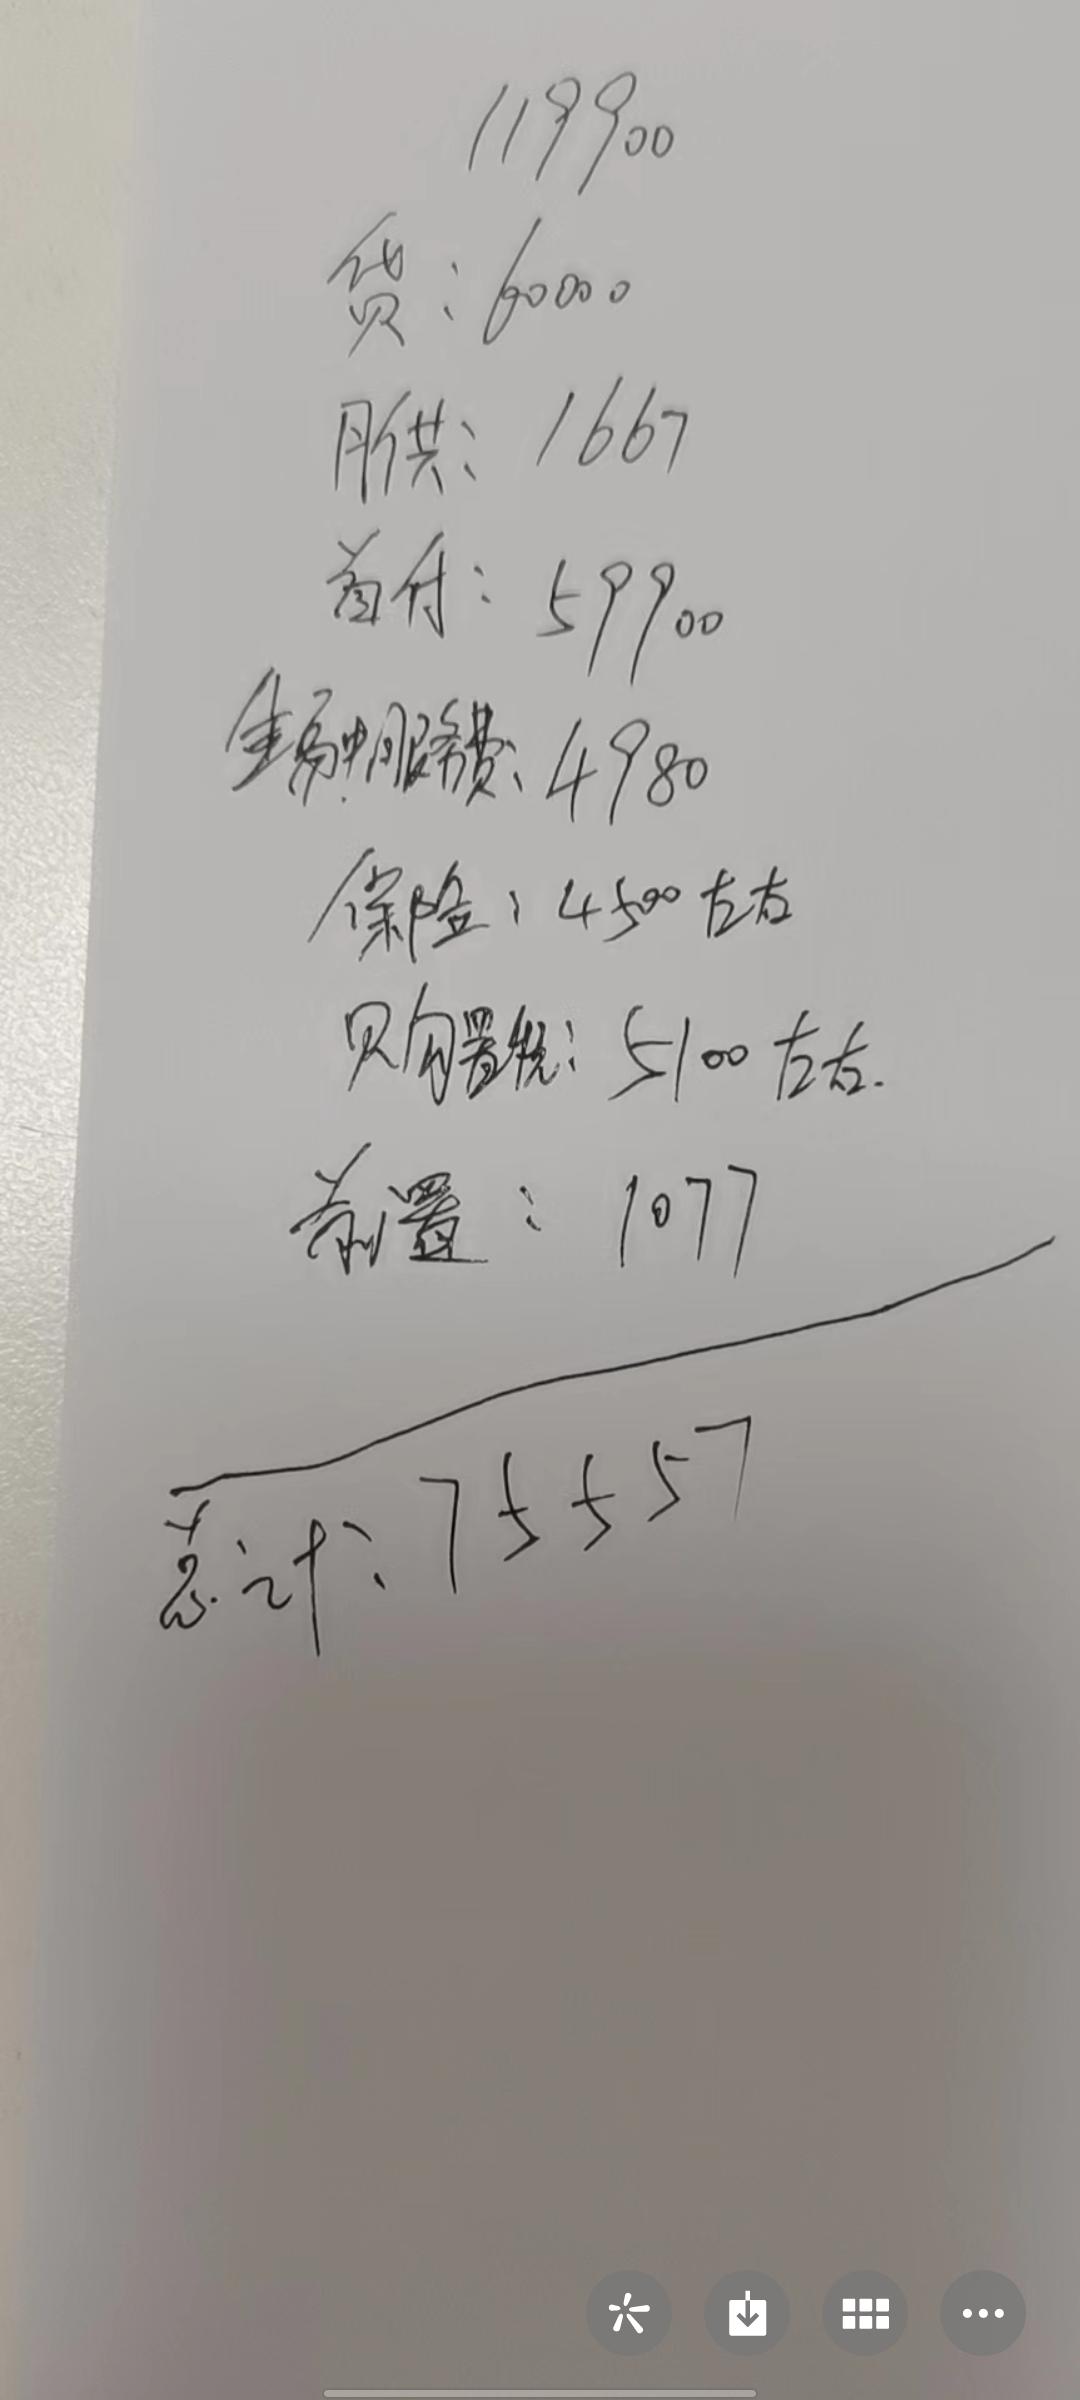 119900
贷：60000
月供：1667
首付：59900
金融服务费：4980
保险：4500左右
购置税：5100左右.
前置：1077
总计：75557